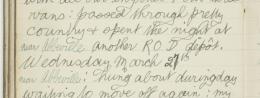 vans: passed through pretty
country & spent the night at
near Abbeville another R.O.D. depôt.
Wednesday March 27th
near Abbeville: hung about during day
waiting to move off again: my